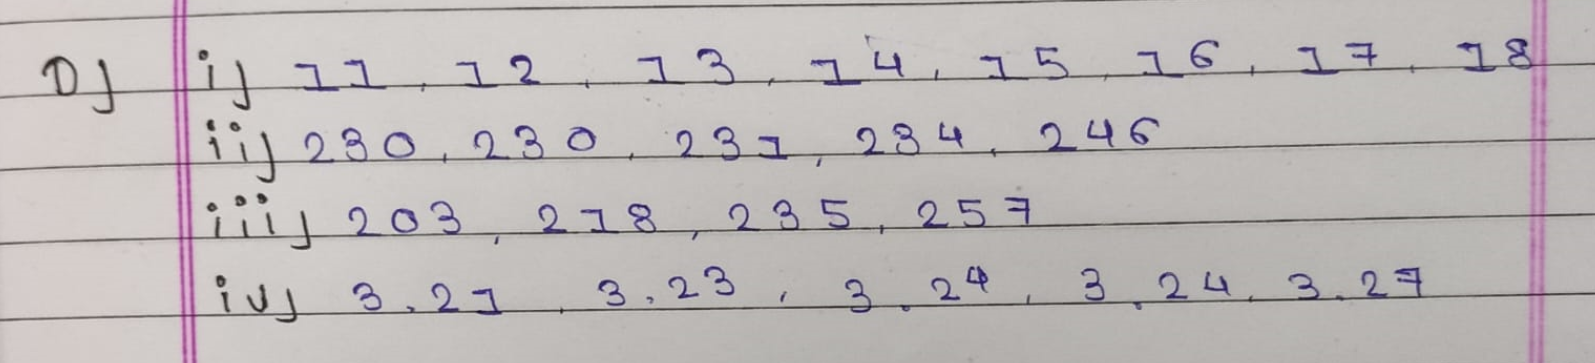 D) i) 11, 12, 13, 14, 15, 16, 17, 18
ii) 230, 230, 231, 234, 246
iii) 203, 218, 235, 257
iv) 3.21, 3.23, 3.24, 3.24, 3.27